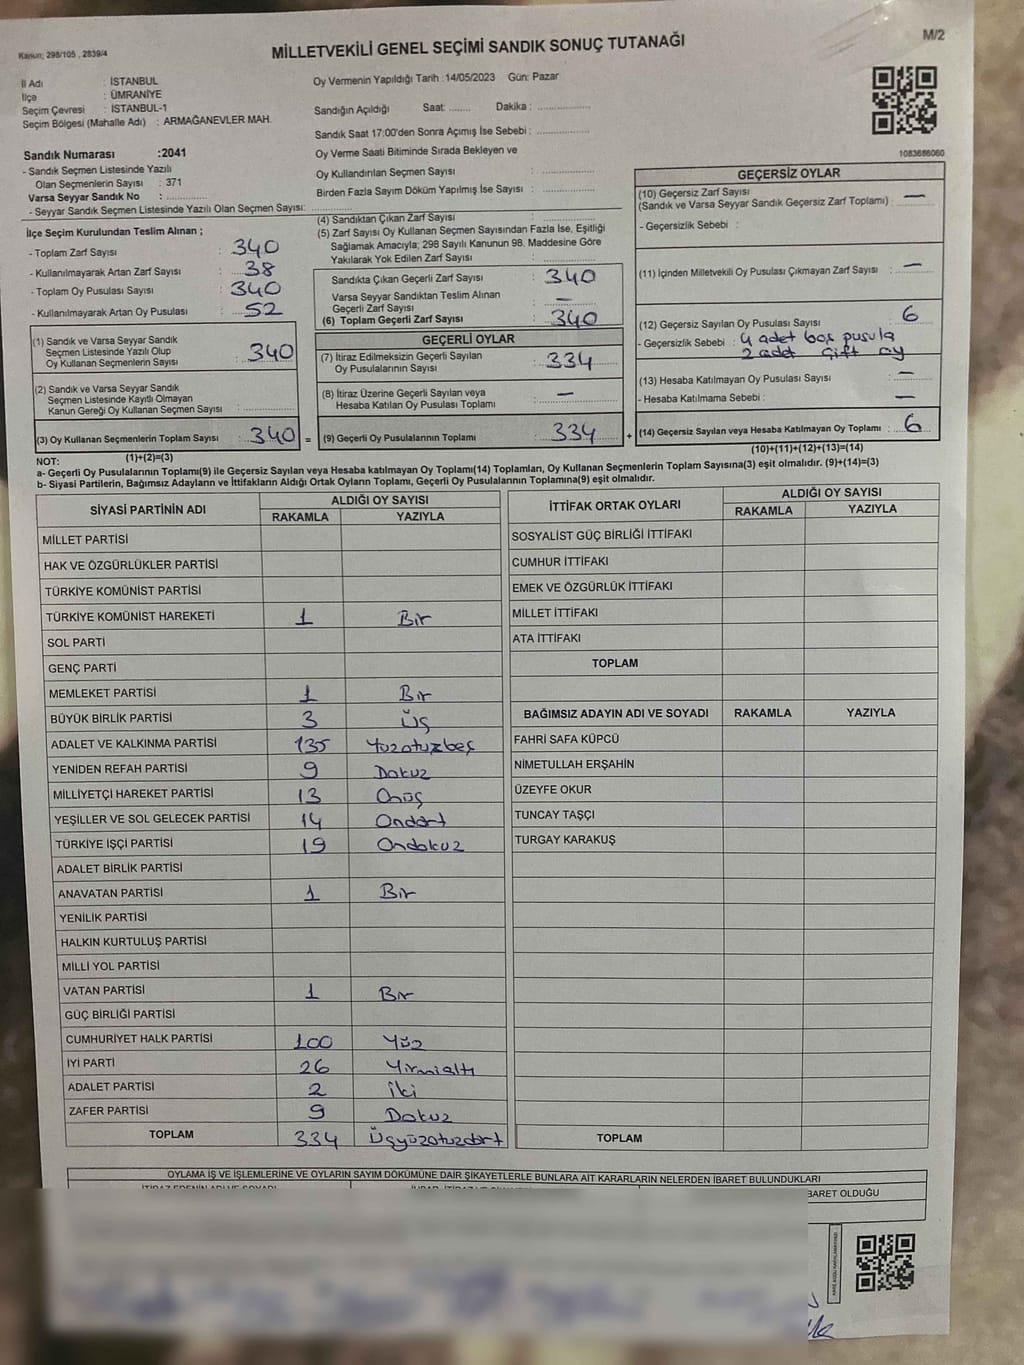 Kanun; 298/105 , 2839/4
MİLLETVEKİLİ GENEL SEÇİMİ SANDIK SONUÇ TUTANAĞI
M/2
İl Adı : İSTANBUL
İlçe : ÜMRANİYE
Seçim Çevresi : İSTANBUL-1
Seçim Bölgesi (Mahalle Adı) : ARMAĞANEVLER MAH.
Sandık Numarası :2041
- Sandık Seçmen Listesinde Yazılı
Olan Seçmenlerin Sayısı : 371
Varsa Seyyar Sandık No :
- Seyyar Sandık Seçmen Listesinde Yazılı Olan Seçmen Sayısı:
Oy Vermenin Yapıldığı Tarih :14/05/2023 Gün: Pazar
Sandığın Açıldığı Saat: Dakika :
Sandık Saat 17:00'den Sonra Açımış İse Sebebi :
Oy Verme Saati Bitiminde Sırada Bekleyen ve
Oy Kullandırılan Seçmen Sayısı :
Birden Fazla Sayım Döküm Yapılmış İse Sayısı :
1083686060
İlçe Seçim Kurulundan Teslim Alınan ;
- Toplam Zarf Sayısı : 340
- Kullanılmayarak Artan Zarf Sayısı : 38
- Toplam Oy Pusulası Sayısı : 340
- Kullanılmayarak Artan Oy Pusulası : 52
(1) Sandık ve Varsa Seyyar Sandık
Seçmen Listesinde Yazılı Olup
Oy Kullanan Seçmenlerin Sayısı : 340
(2) Sandık ve Varsa Seyyar Sandık
Seçmen Listesinde Kayıtlı Olmayan
Kanun Gereği Oy Kullanan Seçmen Sayısı :
(3) Oy Kullanan Seçmenlerin Toplam Sayısı : 340 =
(1)+(2)=(3)
(4) Sandıktan Çıkan Zarf Sayısı :
(5) Zarf Sayısı Oy Kullanan Seçmen Sayısından Fazla İse, Eşitliği
Sağlamak Amacıyla; 298 Sayılı Kanunun 98. Maddesine Göre
Yakılarak Yok Edilen Zarf Sayısı :
Sandıkta Çıkan Geçerli Zarf Sayısı : 340
Varsa Seyyar Sandıktan Teslim Alınan
Geçerli Zarf Sayısı : —
(6) Toplam Geçerli Zarf Sayısı : 340
GEÇERLİ OYLAR
(7) İtiraz Edilmeksizin Geçerli Sayılan
Oy Pusulalarının Sayısı : 334
(8) İtiraz Üzerine Geçerli Sayılan veya
Hesaba Katılan Oy Pusulası Toplamı : —
(9) Geçerli Oy Pusulalarının Toplamı : 334 +
GEÇERSİZ OYLAR
(10) Geçersiz Zarf Sayısı
(Sandık ve Varsa Seyyar Sandık Geçersiz Zarf Toplamı) : —
- Geçersizlik Sebebi :
(11) İçinden Milletvekili Oy Pusulası Çıkmayan Zarf Sayısı : —
(12) Geçersiz Sayılan Oy Pusulası Sayısı : 6
- Geçersizlik Sebebi : 4 adet boş pusula
2 adet çift oy
(13) Hesaba Katılmayan Oy Pusulası Sayısı : —
- Hesaba Katılmama Sebebi : —
(14) Geçersiz Sayılan veya Hesaba Katılmayan Oy Toplamı : 6
(10)+(11)+(12)+(13)=(14)
NOT:
a- Geçerli Oy Pusulalarının Toplamı(9) ile Geçersiz Sayılan veya Hesaba katılmayan Oy Toplamı(14) Toplamları, Oy Kullanan Seçmenlerin Toplam Sayısına(3) eşit olmalıdır. (9)+(14)=(3)
b- Siyasi Partilerin, Bağımsız Adayların ve İttifakların Aldığı Ortak Oyların Toplamı, Geçerli Oy Pusulalarının Toplamına(9) eşit olmalıdır.
SİYASİ PARTİNİN ADI ALDIĞI OY SAYISI
RAKAMLA YAZIYLA
MİLLET PARTİSİ
HAK VE ÖZGÜRLÜKLER PARTİSİ
TÜRKİYE KOMÜNİST PARTİSİ
TÜRKİYE KOMÜNİST HAREKETİ 1 Bir
SOL PARTİ
GENÇ PARTİ
MEMLEKET PARTİSİ 1 Bir
BÜYÜK BİRLİK PARTİSİ 3 Üç
ADALET VE KALKINMA PARTİSİ 135 Yüzotuzbeş
YENİDEN REFAH PARTİSİ 9 Dokuz
MİLLİYETÇİ HAREKET PARTİSİ 13 Onüç
YEŞİLLER VE SOL GELECEK PARTİSİ 14 Ondört
TÜRKİYE İŞÇİ PARTİSİ 19 Ondokuz
ADALET BİRLİK PARTİSİ
ANAVATAN PARTİSİ 1 Bir
YENİLİK PARTİSİ
HALKIN KURTULUŞ PARTİSİ
MİLLİ YOL PARTİSİ
VATAN PARTİSİ 1 Bir
GÜÇ BİRLİĞİ PARTİSİ
CUMHURİYET HALK PARTİSİ 100 Yüz
İYİ PARTİ 26 Yirmialtı
ADALET PARTİSİ 2 İki
ZAFER PARTİSİ 9 Dokuz
TOPLAM 334 Üçyüzotuzdört
İTTİFAK ORTAK OYLARI ALDIĞI OY SAYISI
RAKAMLA YAZIYLA
SOSYALİST GÜÇ BİRLİĞİ İTTİFAKI
CUMHUR İTTİFAKI
EMEK VE ÖZGÜRLÜK İTTİFAKI
MİLLET İTTİFAKI
ATA İTTİFAKI
TOPLAM
BAĞIMSIZ ADAYIN ADI VE SOYADI RAKAMLA YAZIYLA
FAHRİ SAFA KÜPCÜ
NİMETULLAH ERŞAHİN
ÜZEYFE OKUR
TUNCAY TAŞÇI
TURGAY KARAKUŞ
TOPLAM
OYLAMA İŞ VE İŞLEMLERİNE VE OYLARIN SAYIM DÖKÜMÜNE DAİR ŞİKAYETLERLE BUNLARA AİT KARARLARIN NELERDEN İBARET BULUNDUKLARI
İBARET OLDUĞU